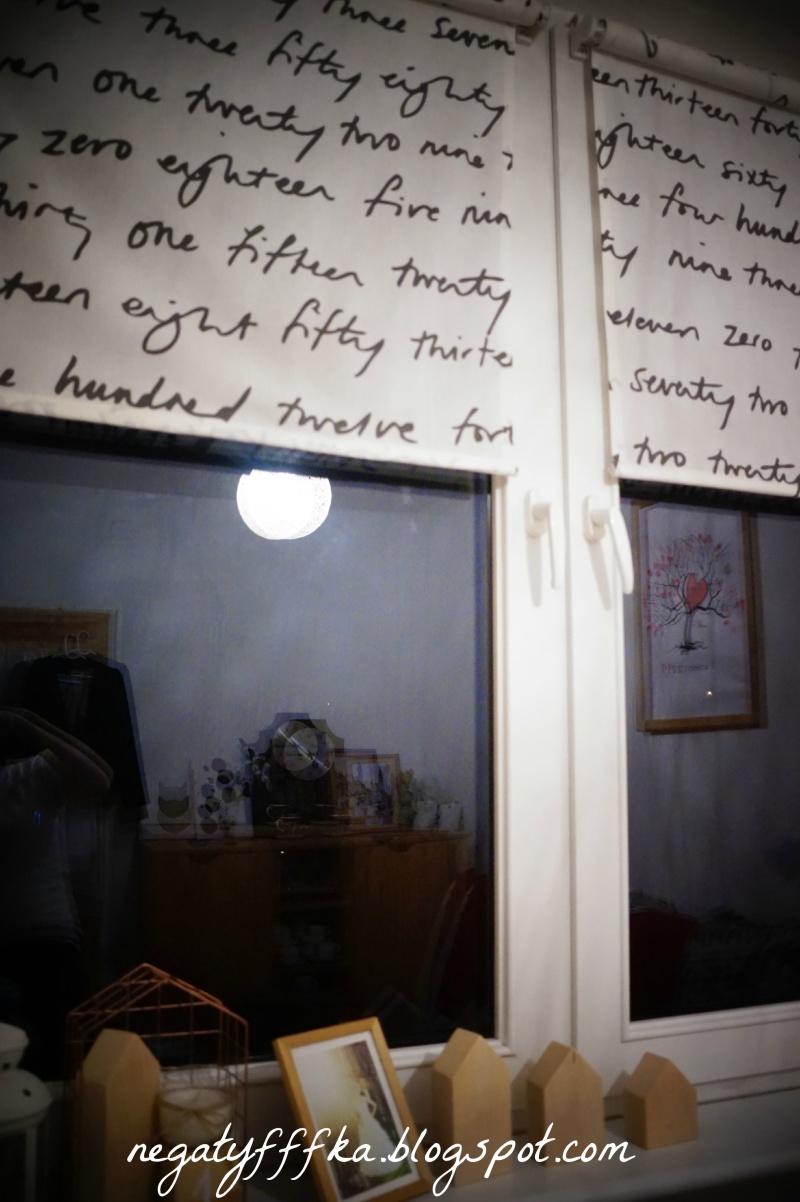 three seven
three fifty eighty
one twenty two nine
zero eighteen five nin
one fifteen twenty
teen eight fifty thirte
hundred twelve fort
een thirteen fort
ghteen sixty
ree four hund
ty nine three
eleven zero
seventy two
two twenty
negatyfffka.blogspot.com